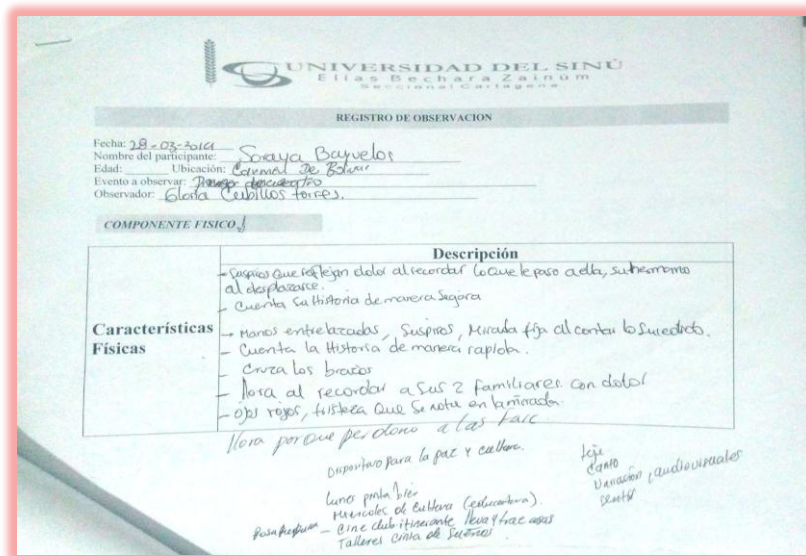 UNIVERSIDAD DEL SINÚ
Elías Bechara Zainúm
Seccional Cartagena
REGISTRO DE OBSERVACION
Fecha: 28-03-2019
Nombre del participante: Soraya Bayuelos
Edad: Ubicación: Carmen De Bolivar
Evento a observar: Primer
Observador: Gloria Ceibillos torres.
COMPONENTE FISICO
Descripción
- Suspiros Que reflejan dolor al recordar lo Que le paso a ella, su hermano
al desplazarse.
- Cuenta Su Historia de manera Segura
Características Físicas
- Manos entrelazadas, Suspiros, Mirada fija al contar lo Sucedido.
- Cuenta la Historia de manera rapida.
- Cruza los brazos
- llora al recordar a Sus 2 familiares con dolor
- ojos rojos, tristeza Que Se nota en la mirada.
llora porque perdono a las Farc
para la paz y cultura.
Lunes pinta bien
Miercoles de Cultura
- Cine club itinerante lleva y trae
Talleres cinta de Sueños
Canto
audiovisuales